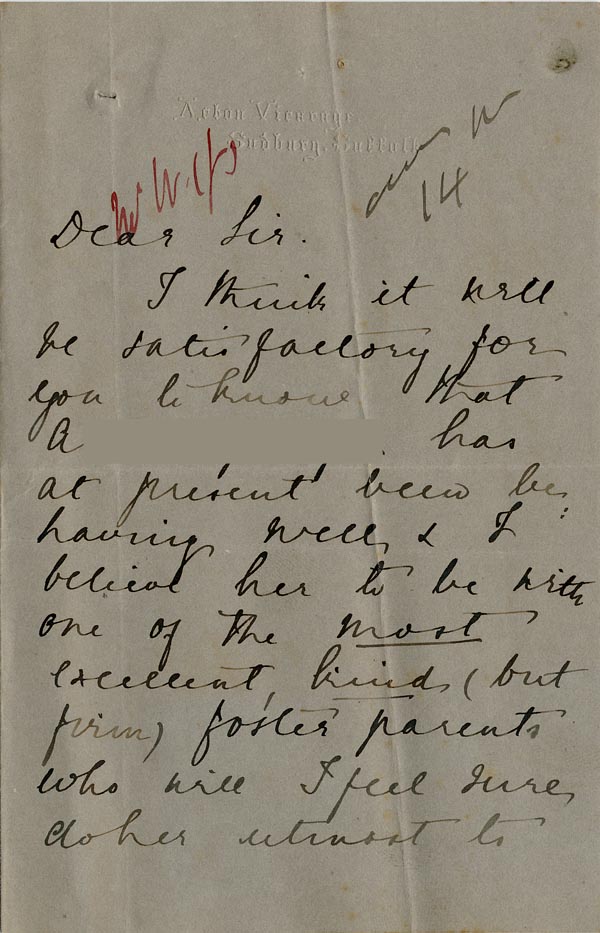 Acton Vicarage,
Sudbury, Suffolk.
14
Dear Sir.
I think it will
be satisfactory for
you to know that
A has
at present been be-
having well & I
believe her to be with
one of the most
excellent, kind (but
firm) foster parents
who will I feel sure,
do her utmost to